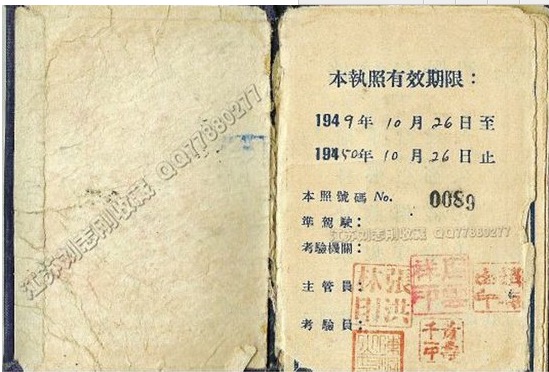 江苏刘志刚收藏 QQ77880277
本執照有效期限：
1949年10月26日至
1950年10月26日止
本照號碼 No. 0089
準駕駛：
江苏刘志刚收藏 QQ77880277
考驗機關：
主管員：
張洪林印
考驗員：